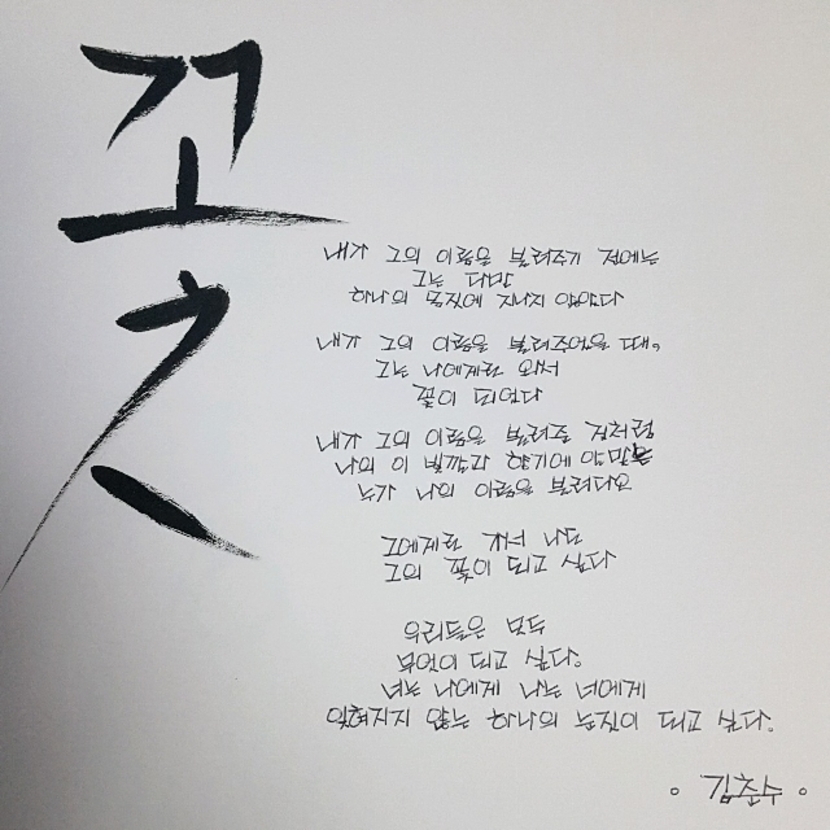 꽃
내가 그의 이름을 불러주기 전에는
그는 다만
하나의 몸짓에 지나지 않았다
내가 그의 이름을 불러주었을 때,
그는 나에게로 와서
꽃이 되었다
내가 그의 이름을 불러준 것처럼
나의 이 빛깔과 향기에 알맞는
누가 나의 이름을 불러다오
그에게로 가서 나도
그의 꽃이 되고 싶다
우리들은 모두
무엇이 되고 싶다.
너는 나에게 나는 너에게
잊혀지지 않는 하나의 눈짓이 되고 싶다.
◦ 김춘수 ◦